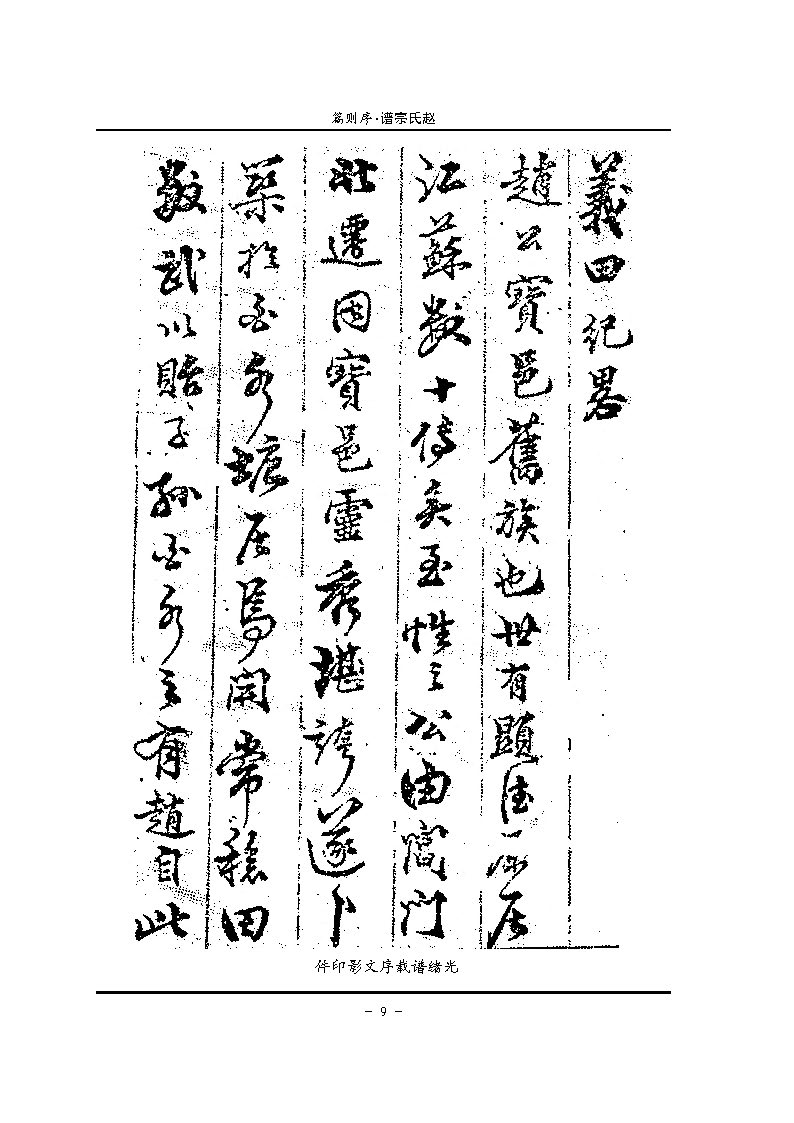 赵氏宗谱·序则篇
義田紀畧
趙公寶邑舊族也世有顯德原居
江蘇數十傳矣至性之公由閶門
北遷因寶邑靈秀堪誇遂卜
築於白水塘居焉開常稔田
數武以貽子孫白水之有趙自此
光绪谱载序文影印件
- 9 -